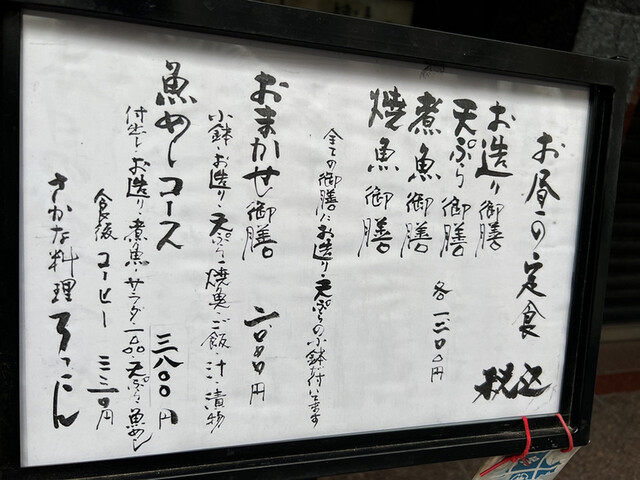 お昼の定食
税込
お造り御膳
天ぷら御膳
煮魚御膳
焼魚御膳
各一二〇〇円
全ての御膳にお造り・天ぷらの小鉢が付いてます
おまかせ御膳 二〇〇〇円
小鉢・お造り・天ぷら・焼魚・ご飯・汁・漬物
魚めしコース 三八〇〇円
付出し・お造り・煮魚・サラダ・一品・天ぷら・魚めし
食後 コーヒー 三三〇円
さかな料理 ろっこん